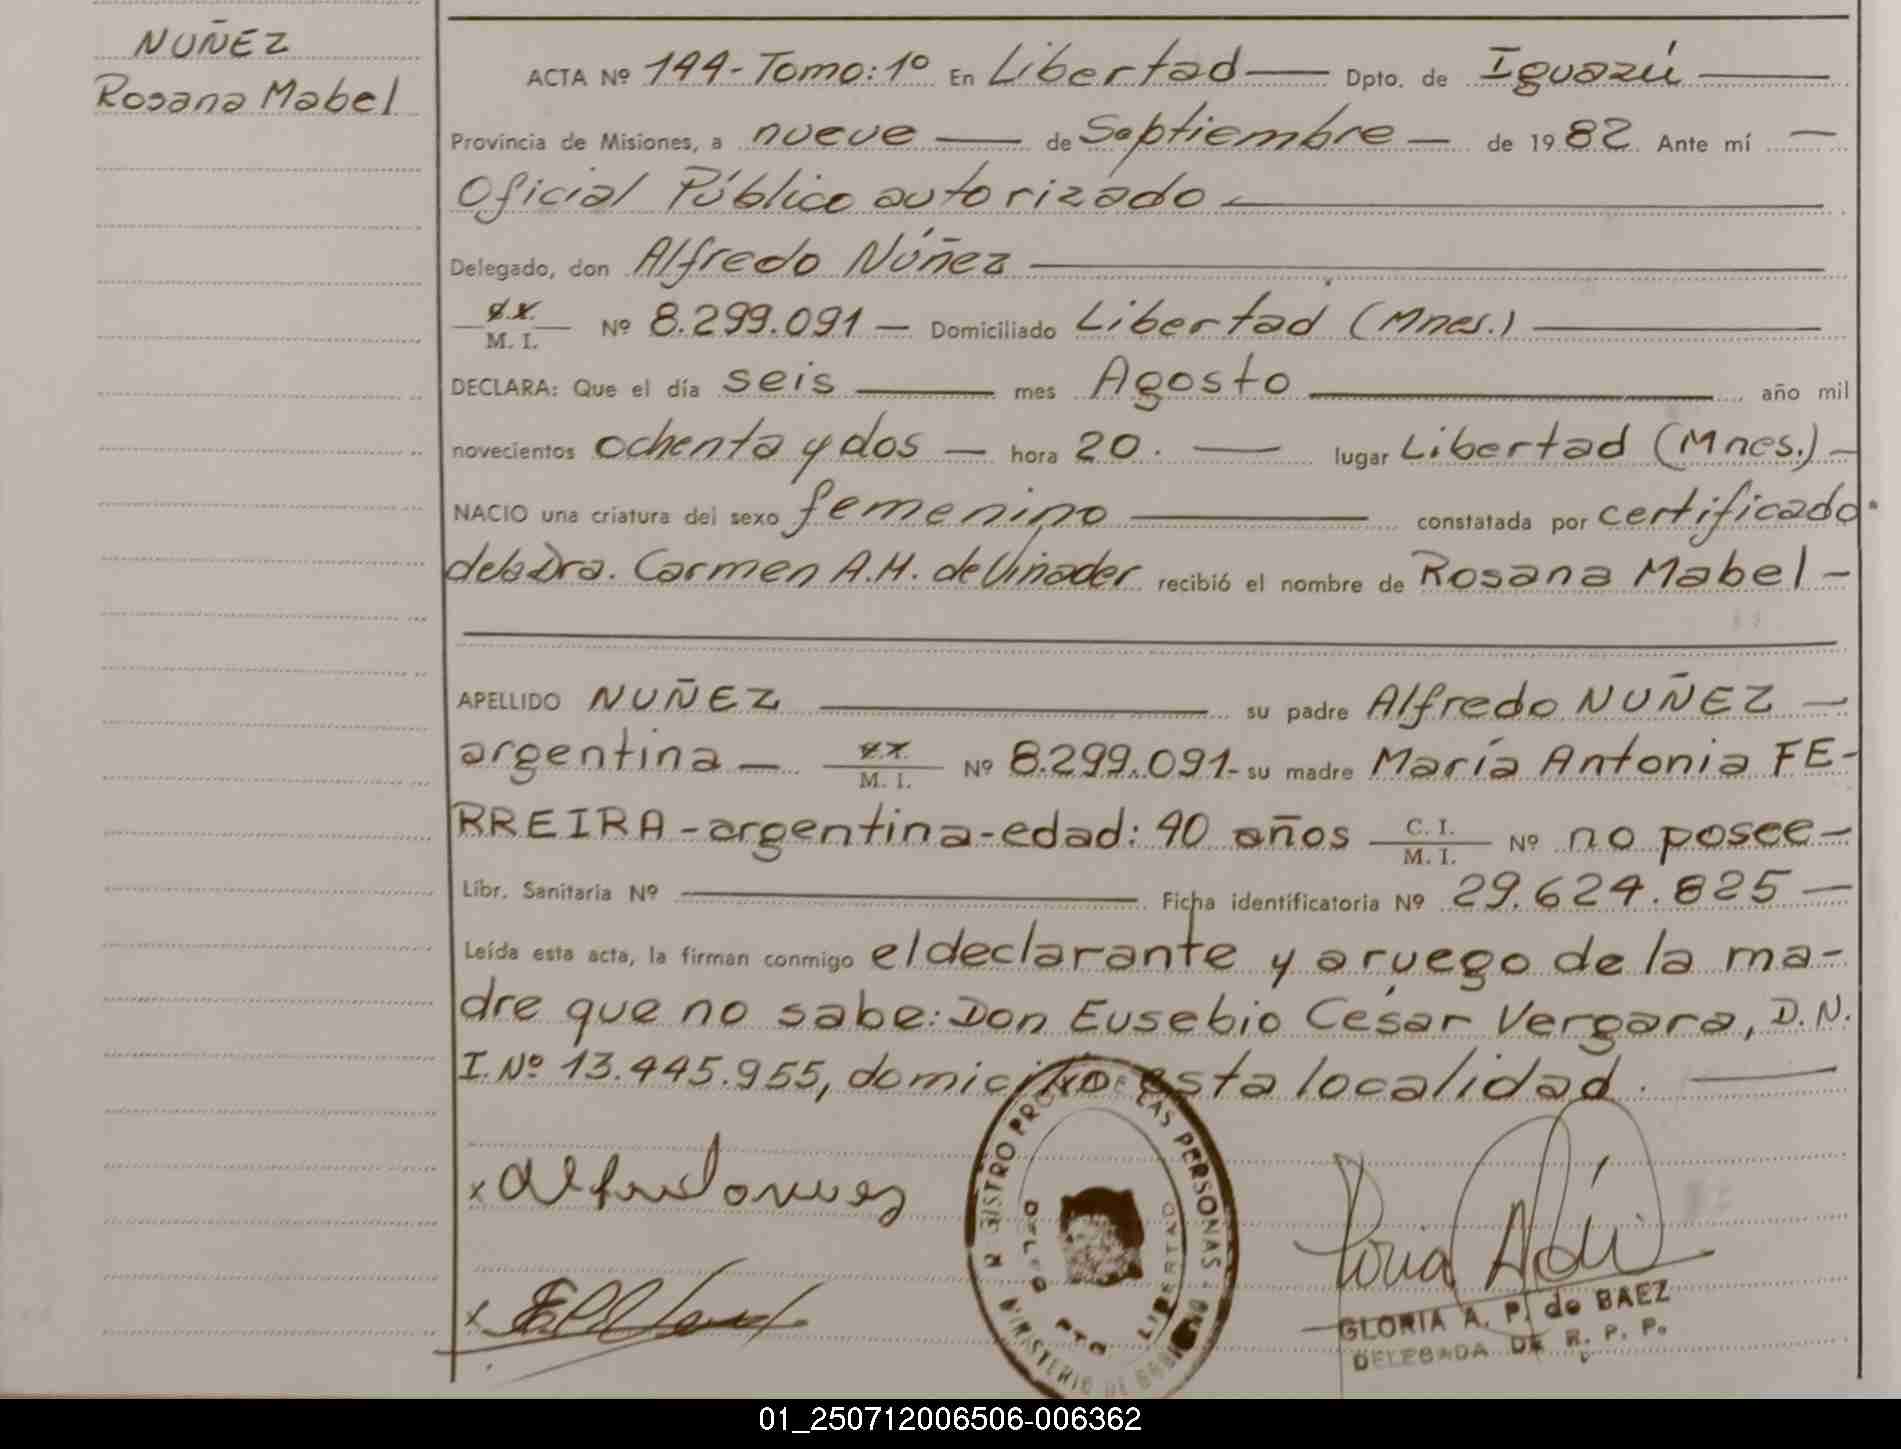 NUÑEZ
Rosana Mabel
ACTA Nº 144- Tomo: 1º En Libertad — Dpto. de Iguazú —
Provincia de Misiones, a nueve — de Septiembre — de 1982 Ante mí —
Oficial Público autorizado —
Delegado, don Alfredo Núñez —
M. I. Nº 8.299.091 — Domiciliado Libertad (Mnes.) —
DECLARA: Que el día seis — mes Agosto — año mil
novecientos ochenta y dos — hora 20. — lugar Libertad (Mnes.) —
NACIO una criatura del sexo femenino — constatada por certificado
de la Dra. Carmen A.H. de Vinader recibió el nombre de Rosana Mabel —
APELLIDO NUÑEZ — su padre Alfredo NUÑEZ —
argentina — M. I. Nº 8.299.091- su madre María Antonia FE-
RREIRA - argentina - edad: 40 años C. I. M. I. Nº no posee —
Libr. Sanitaria Nº — Ficha identificatoria Nº 29.624.825 —
Leída esta acta, la firman conmigo el declarante y a ruego de la ma-
dre que no sabe: Don Eusebio César Vergara, D.N.
I. Nº 13.445.955, domicilio esta localidad. —
x Alfredo nuñez
x
REGISTRO PROV. DE LAS PERSONAS
MINISTERIO DE GOBIERNO
DELEG. LIBERTAD
GLORIA A. P. de BAEZ
DELEGADA DE R. P. P.
01_250712006506-006362